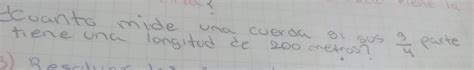 tiene la
¿Cuanto mide una cuerda si sus 3/4 parte
tiene una longitud de 200 metros?
3) Resolver los